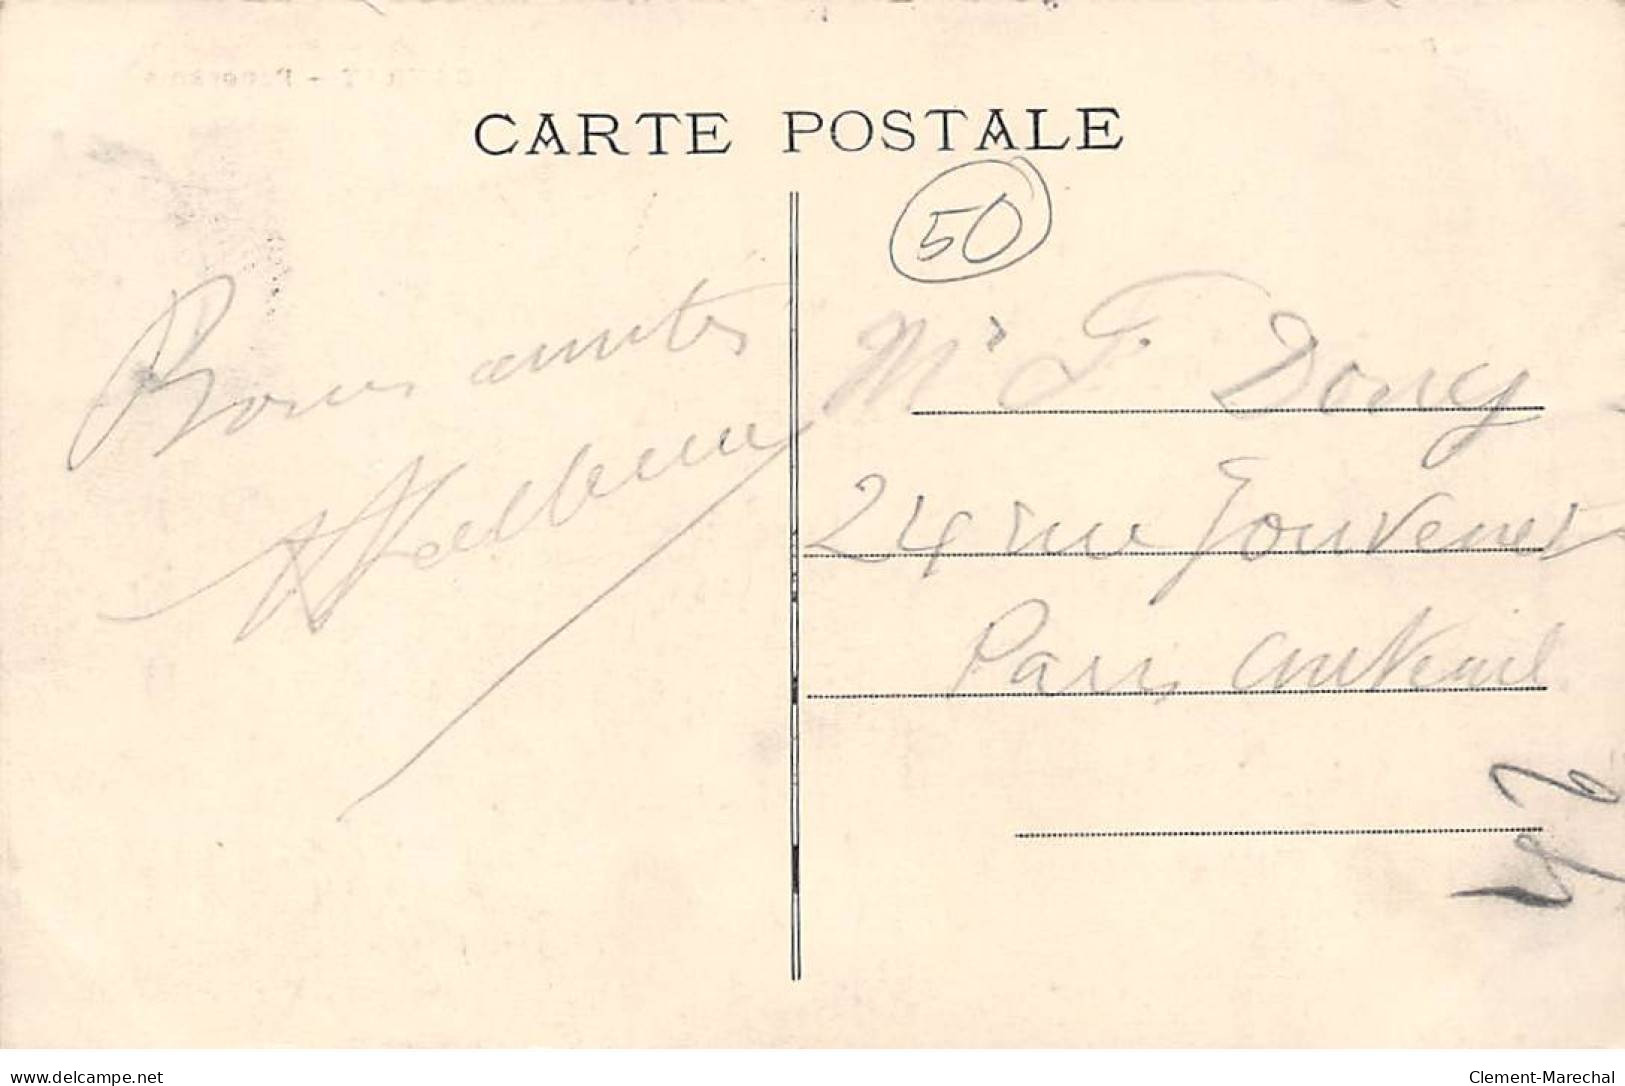 CARTE POSTALE
50
Bonnes amitiés
Mr F. Doucy
24 rue Jouvenet
Paris Auteuil
delcampe.net
Clement-Marechal